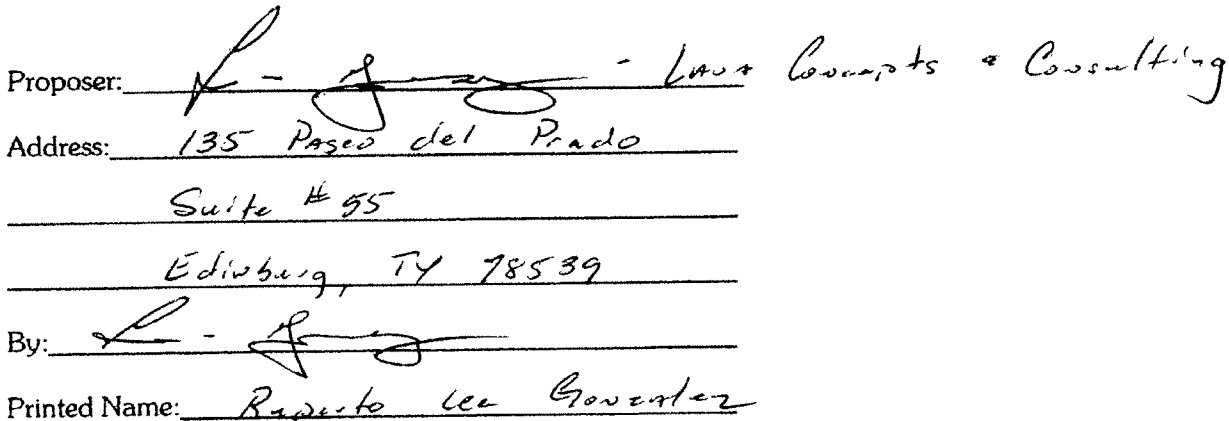 Proposer: - Lava Concepts & Consulting
Address: 135 Paseo del Prado
Suite # 55
Edinburg, TX 78539
By:
Printed Name: Roberto Lee Gonzalez